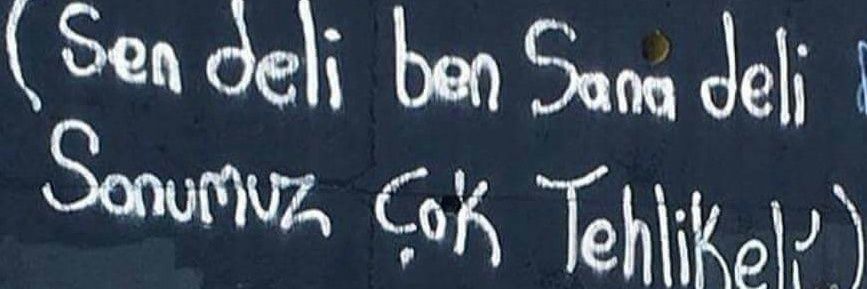 (Sen deli ben Sana deli
Sonumuz Çok Tehlikeli.)